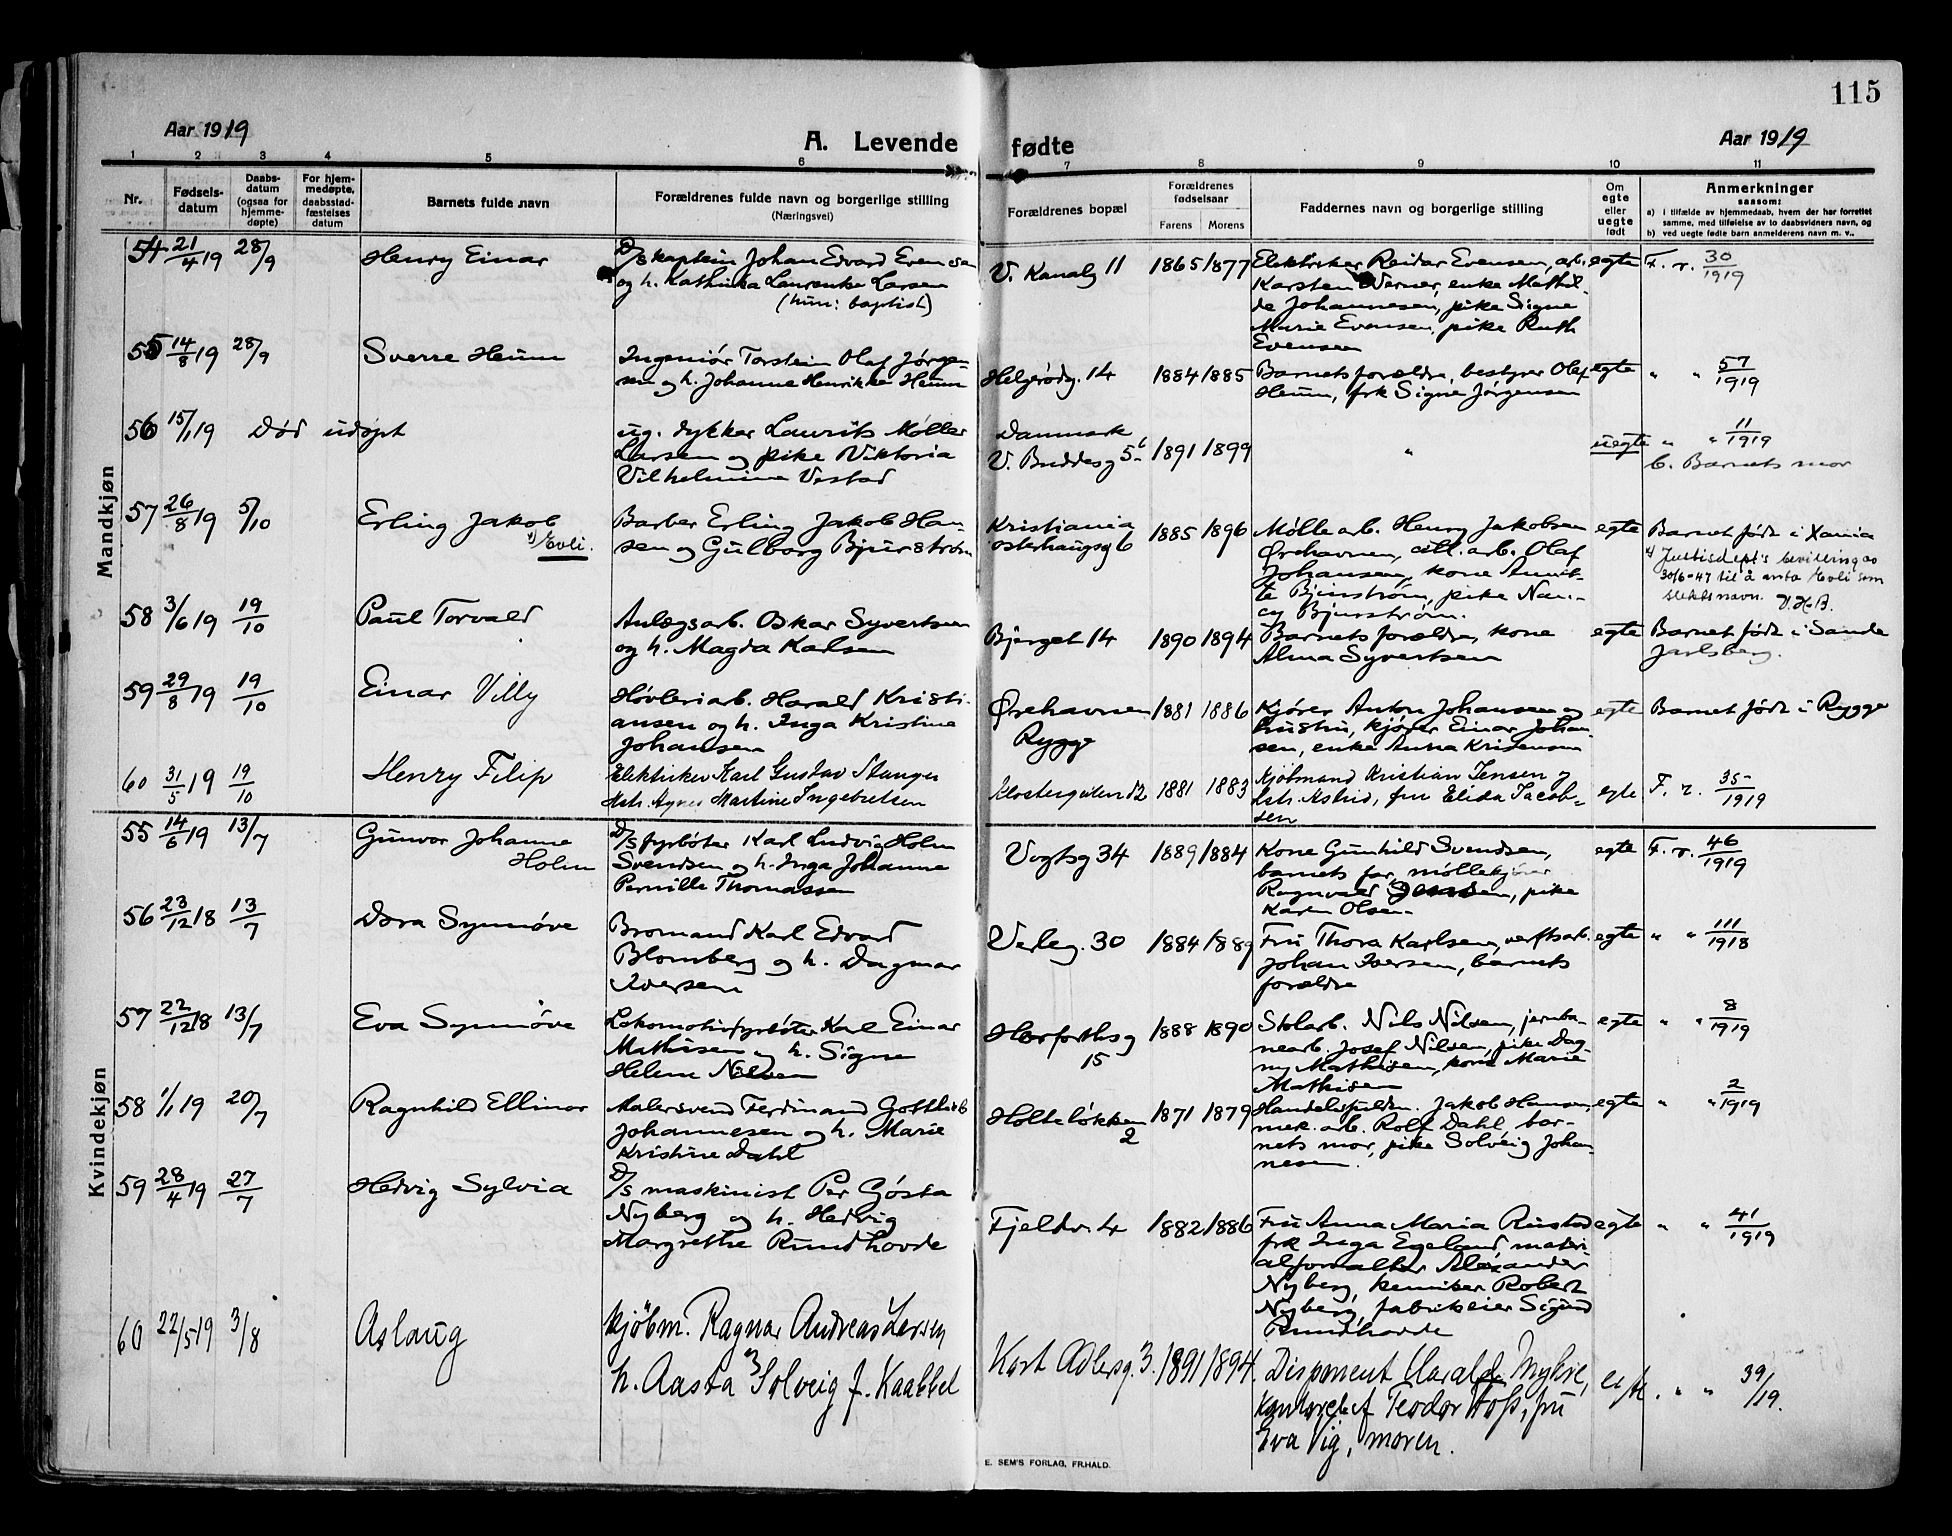 115
Aar 1919
A. Levende fødte
Aar 1919
1 2 3 4 5 6 7 8 9 10 11
Nr.
Fødsels-
datum
Daabs-
datum
(ogsaa for
hjemme-
døpte)
For hjem-
medøpte,
daabsstad-
fæstelses
datum
Barnets fulde navn
Forældrenes fulde navn og borgerlige stilling
(Næringsvei)
Forældrenes bopæl
Forældrenes
fødselsaar
Farens Morens
Faddernes navn og borgerlige stilling
Om
egte
eller
uegte
født
Anmerkninger
saasom:
a) i tilfælde av hjemmedaab, hvem der har forrettet
samme, med tilføielse av to daabsvidners navn, og
b) ved uegte fødte barn anmelderens navn m. v..
Mandkjøn
54 21/4 19 28/9 Henry Einar
D/s kaptein Johan Edvard Evensen
og h. Kathinka Laurenke Larsen
(hun: baptist)
V. Kanalg 11 1865 1877
Elektriker Reidar Evensen, arb.
Karsten Werner, enke Mathil-
de Johannesen, pike Signe
Marie Evensen, pike Ruth
Evensen
egte F. r. 30/1919
55 14/8 19 28/9 Sverre Heum
Ingeniør Torstein Olaf Jørgen-
sen og h. Johanne Henrikke Heum
Helgerødg. 14 1884 1885
Barnets forældre, bestyrer Olaf
Heum, frk Signe Jørgensen
egte " " 57/1919
56 15/1 19 Død udøpt
ug. dykker Laurits Møller
Larsen og pike Viktoria
Vilhelmine Vestad
Danmark
V. Buddesg 5b 1891 1899
"
uegte " " 11/1919
b. Barnets mor
57 26/8 19 5/10 Erling Jakob
1) Evli.
Barber Erling Jakob Han-
sen og Gulborg Bjurstrøm
Kristiania
Osterhaugsg 6 1885 1896
Mølle arb. Henry Jakobsen
Ørehavnen, cell. arb. Olaf
Johansen, kone Annet-
te Bjurstrøm, pike Nan-
cy Bjurstrøm.
egte Barnet født i Xania
1) Justisdept's bevilling av
30/6-47 til å anta Evli som
slektsnavn. V.H.B.
58 3/6 19 19/10 Paul Torvald
Anlægsarb. Oskar Syvertsen
og h. Magda Karlsen
Bjerget 14 1890 1894
Barnets forældre, kone
Alma Syvertsen
egte Barnet født i Sande
Jarlsberg.
59 29/8 19 19/10 Einar Villy
Høvleriarb. Harald Kristi-
ansen og h. Inga Kristine
Johansen
Ørehavnen
Rygge 1881 1886
Kjører Anton Johansen og
hustru, kjører Einar Johan-
sen, enke Anna Kristensen
egte Barnet født i Rygge
60 31/5 19 19/10 Henry Filip
Elektriker Karl Gustav Stanger
Hstr. Agnes Martine Ingebretsen
Klostergaten 12 1881 1883
Kjøbmand Kristian Jensen og
hstr. Astrid, fru Elida Jacob-
sen
egte F. r. 35/1919
Kvindekjøn
55 14/6 19 13/7 Gunvor Johanne
Holm
D/s fyrbøter Karl Ludvig Holm
Svendsen og h. Inga Johanne
Pernille Thomassen
Vogtsg 34 1889 1884
Kone Gunhild Svendsen,
barnets far, møllekjører
Ragnvald Svendsen, pike
Karen Olsen
egte F. r. 46/1919
56 23/12 18 13/7 Dora Synnøve
Bromand Karl Edvard
Blomberg og h. Dagmar
Iversen
Verleg. 30 1884 1889
Fru Thora Karlsen, verftsarb.
Johan Iversen, barnets
forældre
egte " " 111/1918
57 22/12 18 13/7 Eva Synnøve
Lokomotivfyrbøter Karl Einar
Mathisen og h. Signe
Helene Nilsen
Herforthsg
15 1888 1890
Stolarb. Nils Nilsen, jernba-
nearb. Josef Nilsen, pike Dag-
ny Mathisen, kone Marie
Mathisen
egte " " 8/1919
58 1/1 19 20/7 Ragnhild Ellinor
Malersvend Ferdinand Gottlieb
Johannesen og h. Marie
Kristine Dahl
Holteløkken
2 1871 1879
Handelsfuldm. Jakob Hansen,
mek. arb. Rolf Dahl, bar-
nets mor, pike Solveig Johan-
nesen.
egte " " 2/1919
59 28/4 19 27/7 Hedvig Sylvia
D/s maskinist Per Gösta
Nyberg og h. Hedvig
Margrethe Rundhovde
Fjeldv. 4 1882 1886
Fru Anna Maria Rustad
frk Inga Egeland, materi-
alforvalter Alexander
Nyberg, kemiker Robert
Nyberg, fabrikeier Sigurd
Rundhovde
egte " " 41/1919
60 22/5 19 3/8 Aslaug
Kjöbm. Ragnar Andreas Larsen
h. Aasta Solveig f. Kaabbel
Kort Adlersg. 3. 1891 1894.
Disponent Harald Myhre,
Kontorchef Teodor Foss, fru
Eva Vig, moren.
egte. " " 39/19.
E. SEM'S FORLAG, FR.HALD.